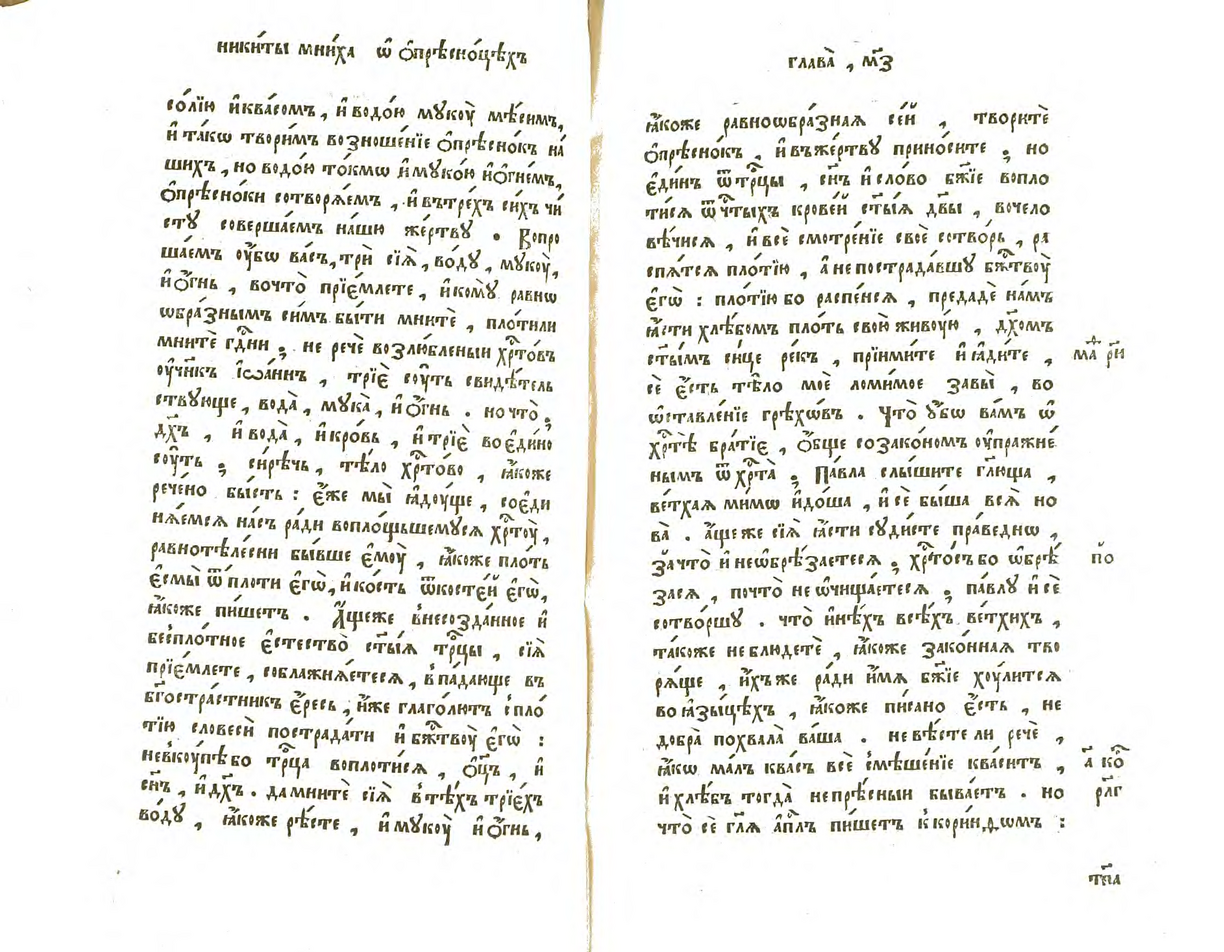 ники́ты мни́ха ѡ҆ ѻ҆прѣсно́цѣхъ
со́лїю и҆ква́сомъ, и҆водо́ю мꙋкоу̀ мѣ́симъ,
и҆та́кѡ твори́мъ возноше́нїе ѻ҆прѣсно́къ на́
шихъ, но водо́ю то́кмѡ и҆мꙋко́ю и҆ѻ҆гне́мъ,
ѻ҆прѣсно́ки сотворѧ́емъ, и҆втре́хъ си́хъ чи́
стꙋ соверша́емъ на́шю же́ртвꙋ . Вопро
ша́емъ оу҆́бѡ ва́съ, трѝ сїѧ̀, во́дꙋ, мꙋкоу̀,
и҆ѻ҆́гнь, вочто̀ прїе́млете, и҆комꙋ̀ равнѡ
ѡбра́знымъ си́мъ бы́ти мнитѐ, пло́тилѝ
мнитѐ гд҇ни ; не речѐ возлю́бленыи хр҇то́въ
оу҆чн҃къ і҆ѡа́ннъ, трїѐ соу́ть свидѣ́тель
ствꙋюще, вода̀, мꙋка̀, и҆ѻ҆́гнь . но что̀ ;
дх҃ъ, и҆вода̀, и҆кро́вь, и҆трїѐ во є҆ди́но
соу́ть ; си́рѣчь, тѣ́ло хр҇то́во, ꙗ҆́коже
рече́но бы́сть : є҆́же мы̀ ꙗ҆доу́ще, соєди
нѧ́емсѧ на́съ ра́ди вопло́щьшемꙋсѧ хр҇тоу̀,
равнотѣле́сни бы́вше є҆моу̀, ꙗ҆́коже пло́ть
є҆смы̀ ѿпло́ти є҆гѡ̀, и҆ко́сть ѿкосте́й є҆гѡ̀,
ꙗ҆́коже пи́шетъ . А҆́щеже внесозда́нное и҆
беспло́тное є҆стество̀ ст҃ы́ѧ тр҇цы, сїѧ̀
прїе́млете, соблажнѧ́етесѧ, впа́дающе въ
бг҃остра́стникъ є҆́ресь, и҆́же глаго́лютъ спло́
тїю словесѝ пострада́ти и҆бж҇твоу̀ є҆гѡ̀ :
невкоу́пѣбо тр҇ца воплоти́сѧ, ѻ҆ц҃ъ, и҆
сн҃ъ, и҆дх҃ъ . да мнитѐ сїѧ̀ втѣ́хъ трїе́хъ
во́дꙋ, ꙗ҆́коже рѣ́сте, и҆мꙋкоу̀ и҆ѻ҆́гнь,
глава̀, м҃з
ꙗ҆́коже равноѡбра́знаѧ се́й, творитѐ
ѻ҆прѣсно́къ, и҆въже́ртвꙋ прино́сите ; но
є҆ди́нъ ѿтр҇цы, сн҃ъ и҆сло́во бж҃їе вопло
ти́сѧ ѿчт҇ыхъ крове́й ст҃ы́ѧ дв҃ы, вочело
вѣ́чисѧ, и҆всѐ смотре́нїе своѐ сотво́рь, ра
спѧ́тсѧ пло́тїю, а҆непострада́вшꙋ бж҇твоу̀
є҆гѡ̀ : пло́тїю бо распе́нсѧ, предадѐ на́мъ
ꙗ҆́сти хлѣ́бомъ пло́ть свою̀ живоу́ю, дх҃омъ
ст҃ы́мъ си́це ре́къ, прїими́те и҆ꙗ҆ди́те,
сѐ є҆́сть тѣ́ло моѐ ломи́мое за вы̀, во
ѡ҆ставле́нїе грѣхѡ́въ . Что̀ ᲂу҆́бѡ ва́мъ ѡ҆
хр҇тѣ̀ бра́тїе, ѻ҆́бще созако́номъ оу҆пражне́
нымъ ѿхр҇та̀ ; Па́вла слы́шите гл҃юща,
ве́тхаѧ ми́мѡ и҆до́ша, и҆сѐ бы́ша всѧ̀ но
ва̀ . а҆́щеже сїѧ̀ ꙗ҆́сти сꙋ́дисте пра́веднѡ,
зачто̀ и҆неѡ҆брѣ́заетесѧ ; хр҇то́събо ѡ҆брѣ́
засѧ, почто̀ не ѡ҆чища́етесѧ ; па́влꙋ и҆сѐ
сотво́ршꙋ . что̀ и҆нѣ́хъ всѣ́хъ ве́тхихъ,
та́коже неблюдетѐ, ꙗ҆́коже зако́ннаѧ тво
рѧ́ще, и҆́хъже ра́ди и҆́мѧ бж҃їе хоу́литсѧ
во ꙗ҆зы́цѣхъ, ꙗ҆́коже пи́сано є҆́сть, не
добра̀ похвала̀ ва́ша . не вѣ́сте ли речѐ,
ꙗ҆́кѡ ма́лъ ква́съ всѐ смѣше́нїе ква́ситъ,
и҆хлѣ́бъ тогда̀ непрѣ́сныи быва́етъ . но
что̀ сѐ гл҃ѧ а҆пл҇ъ пи́шетъ ккори́нѳѡмъ :
по҃
а҃ ко҇
рл҃г